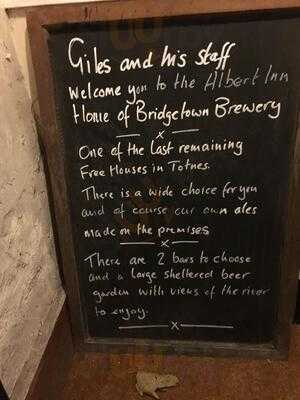 Giles and his staff
Welcome you to the Albert Inn
Home of Bridgetown Brewery
x
One of the last remaining
Free Houses in Totnes.
There is a wide choice for you
and of course our own ales
made on the premises
x
There are 2 bars to choose
and a large sheltered beer
garden with views of the river
to enjoy.
x